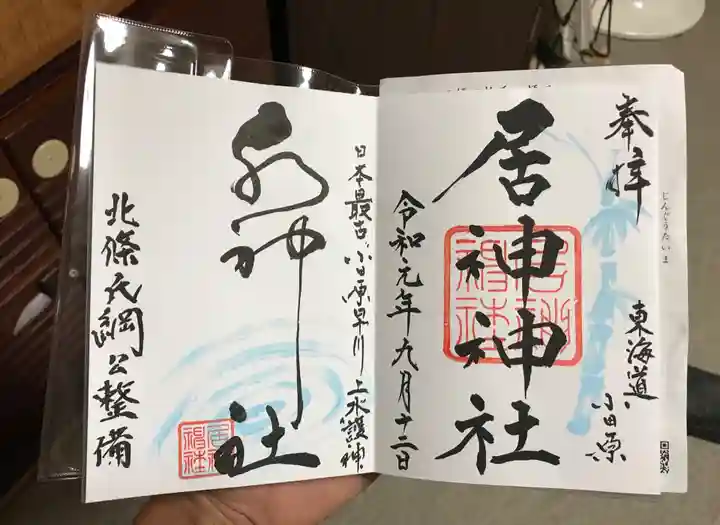 奉拝
東海道
小田原
居神神社
令和元年九月十二日
日本最古小田原早川上水護神
水神社
北條氏綱公整備
居神神社
居神神社
じんじゃうたいま